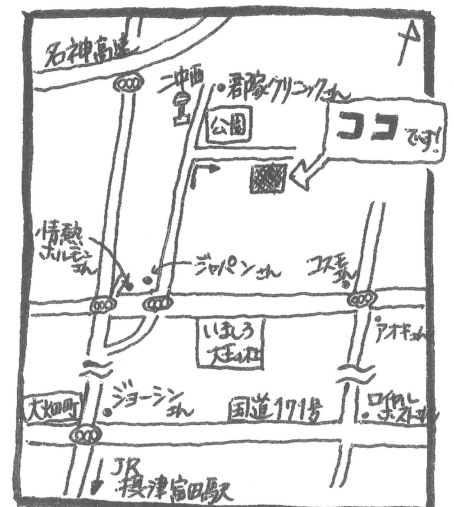 名神高速
二中西
君塚クリニックさん
公園
ココです!
情熱
ホルモン
さん
ジャパンさん
コスモ
さん
いましろ
大王の杜
アオキさん
大畑町
ジョーシン
さん
国道171号
ロイヤル
ホストさん
JR
摂津富田駅